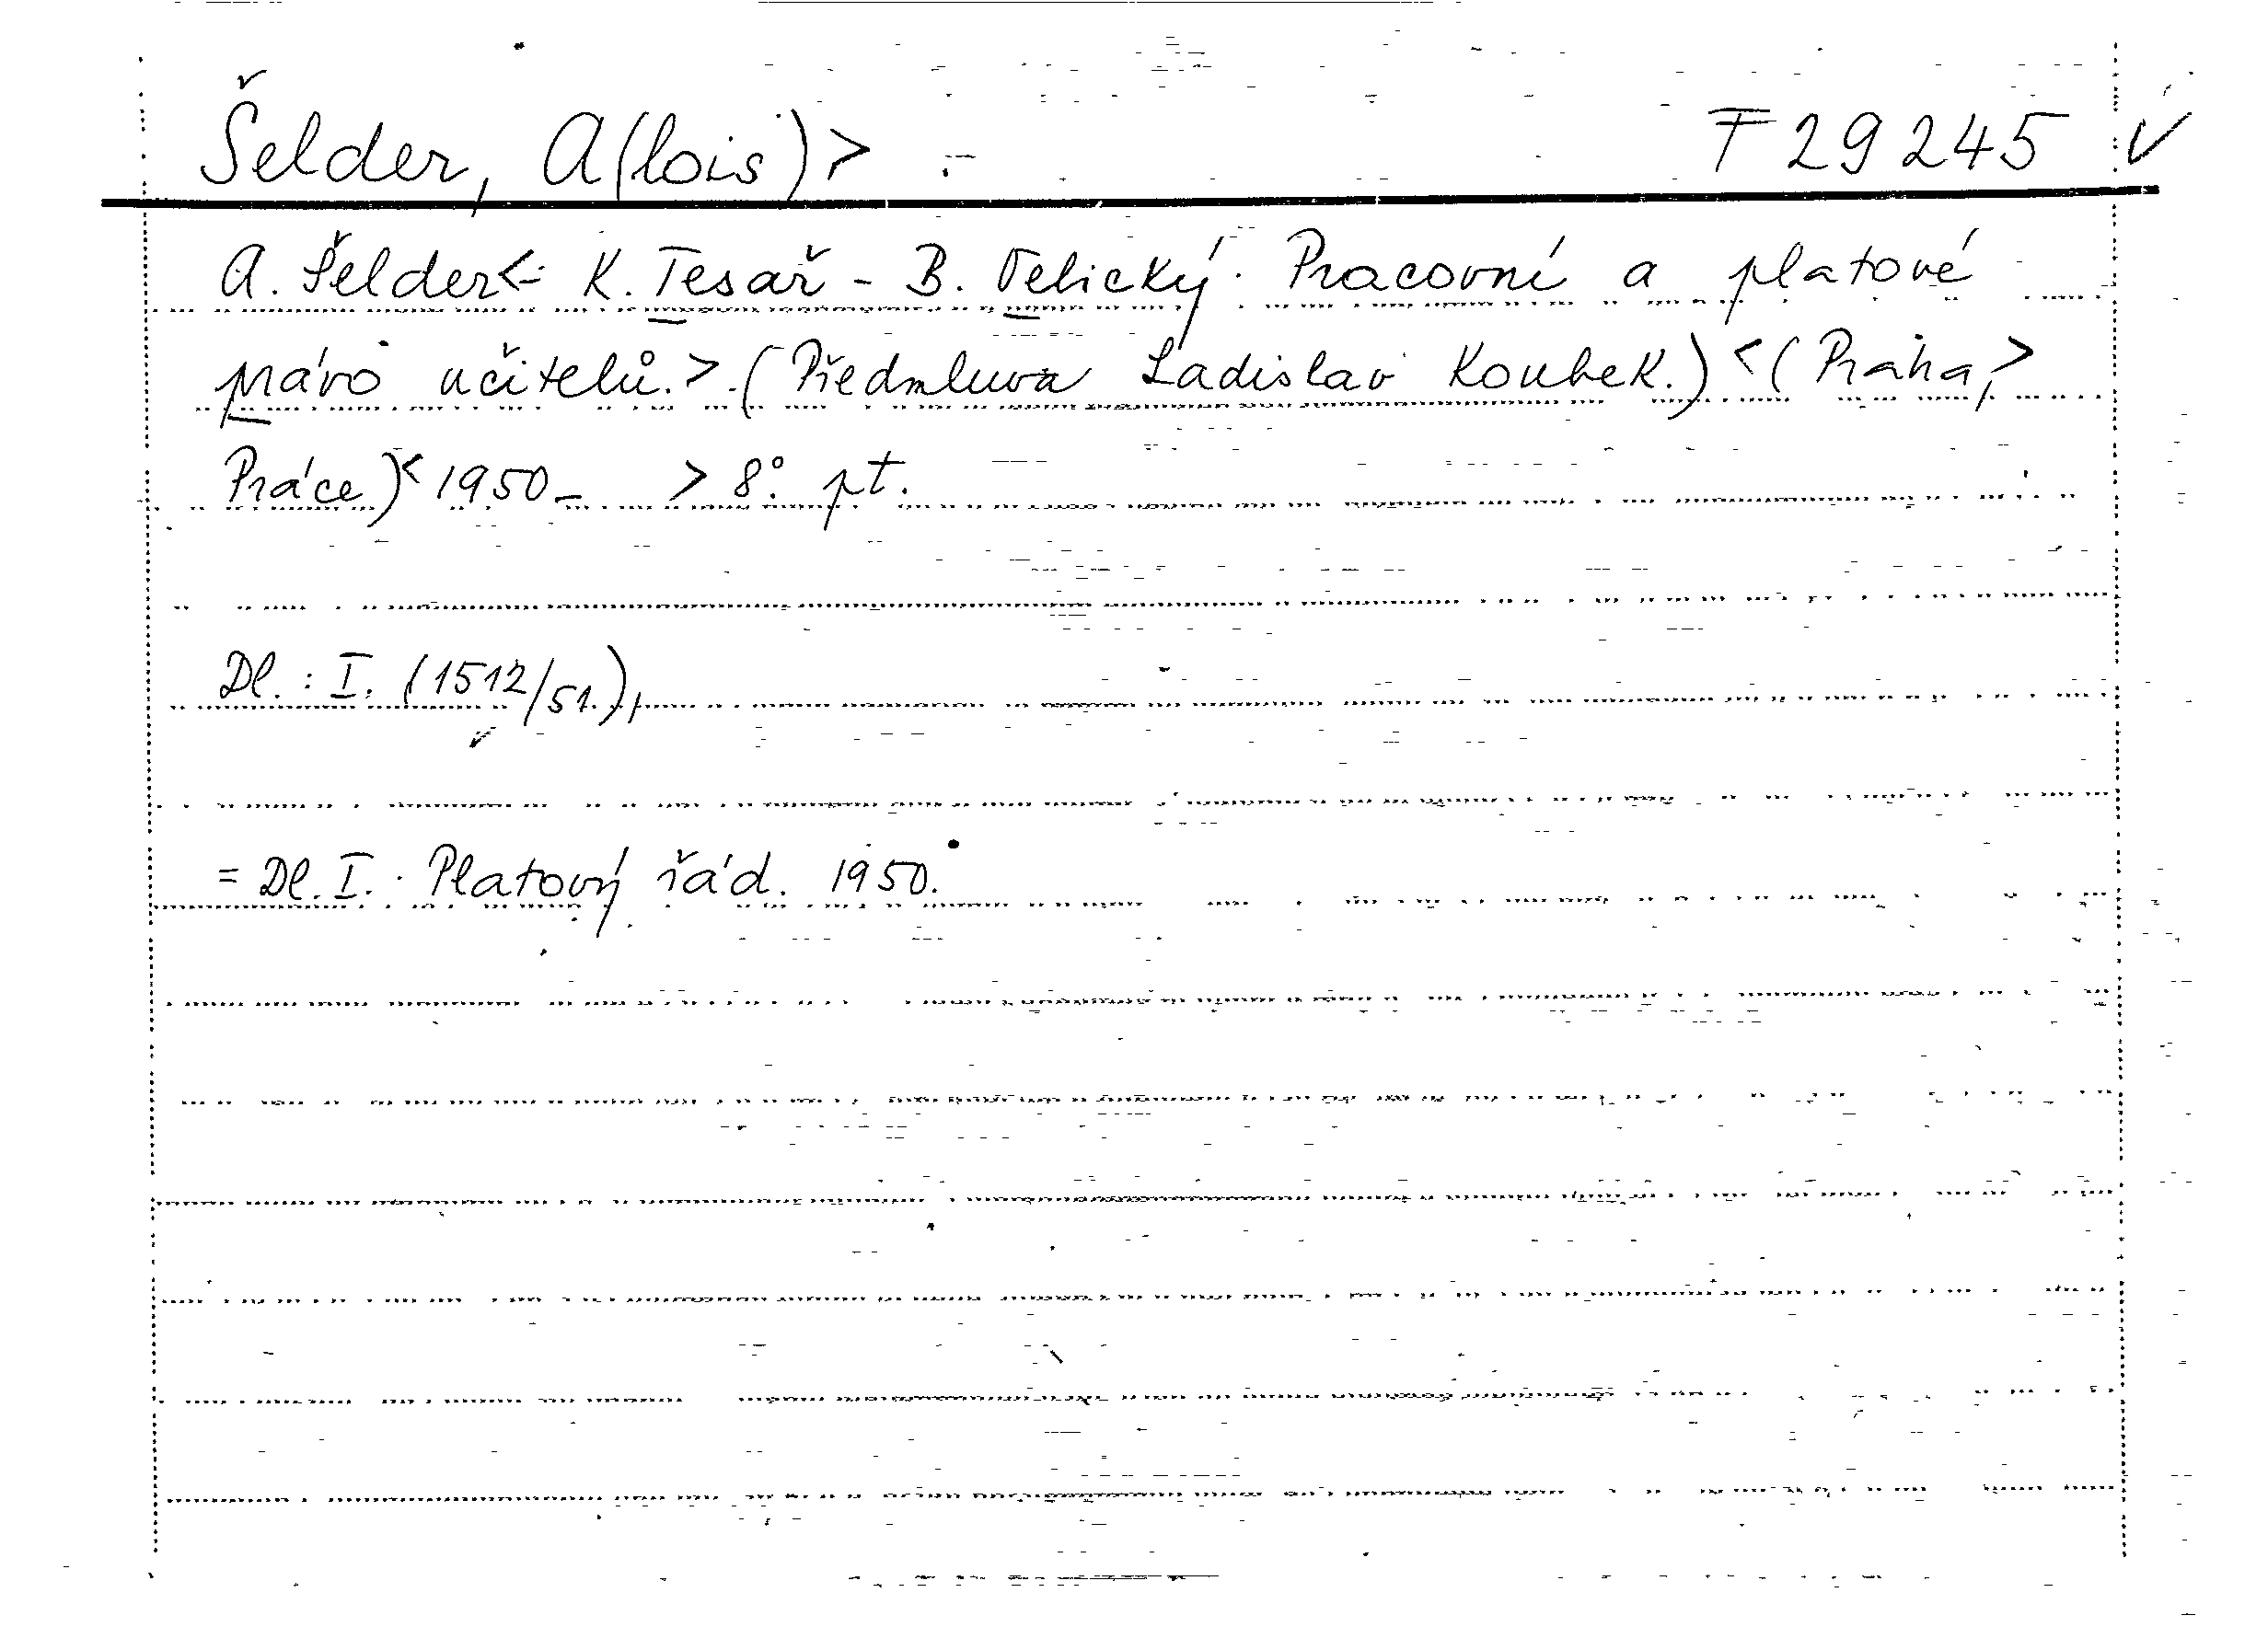 Šelder, A(lois)> F 29245 ✓
A. Šelder<- K. Tesař - B. Velický. Pracovní a platové
právo učitelů.> (Předmluva Ladislav Koubek.) <(Praha,>
Práce)< 1950- > 8°. pt.
Dl. : I. (1512/51.),
= Dl. I. Platový řád. 1950.